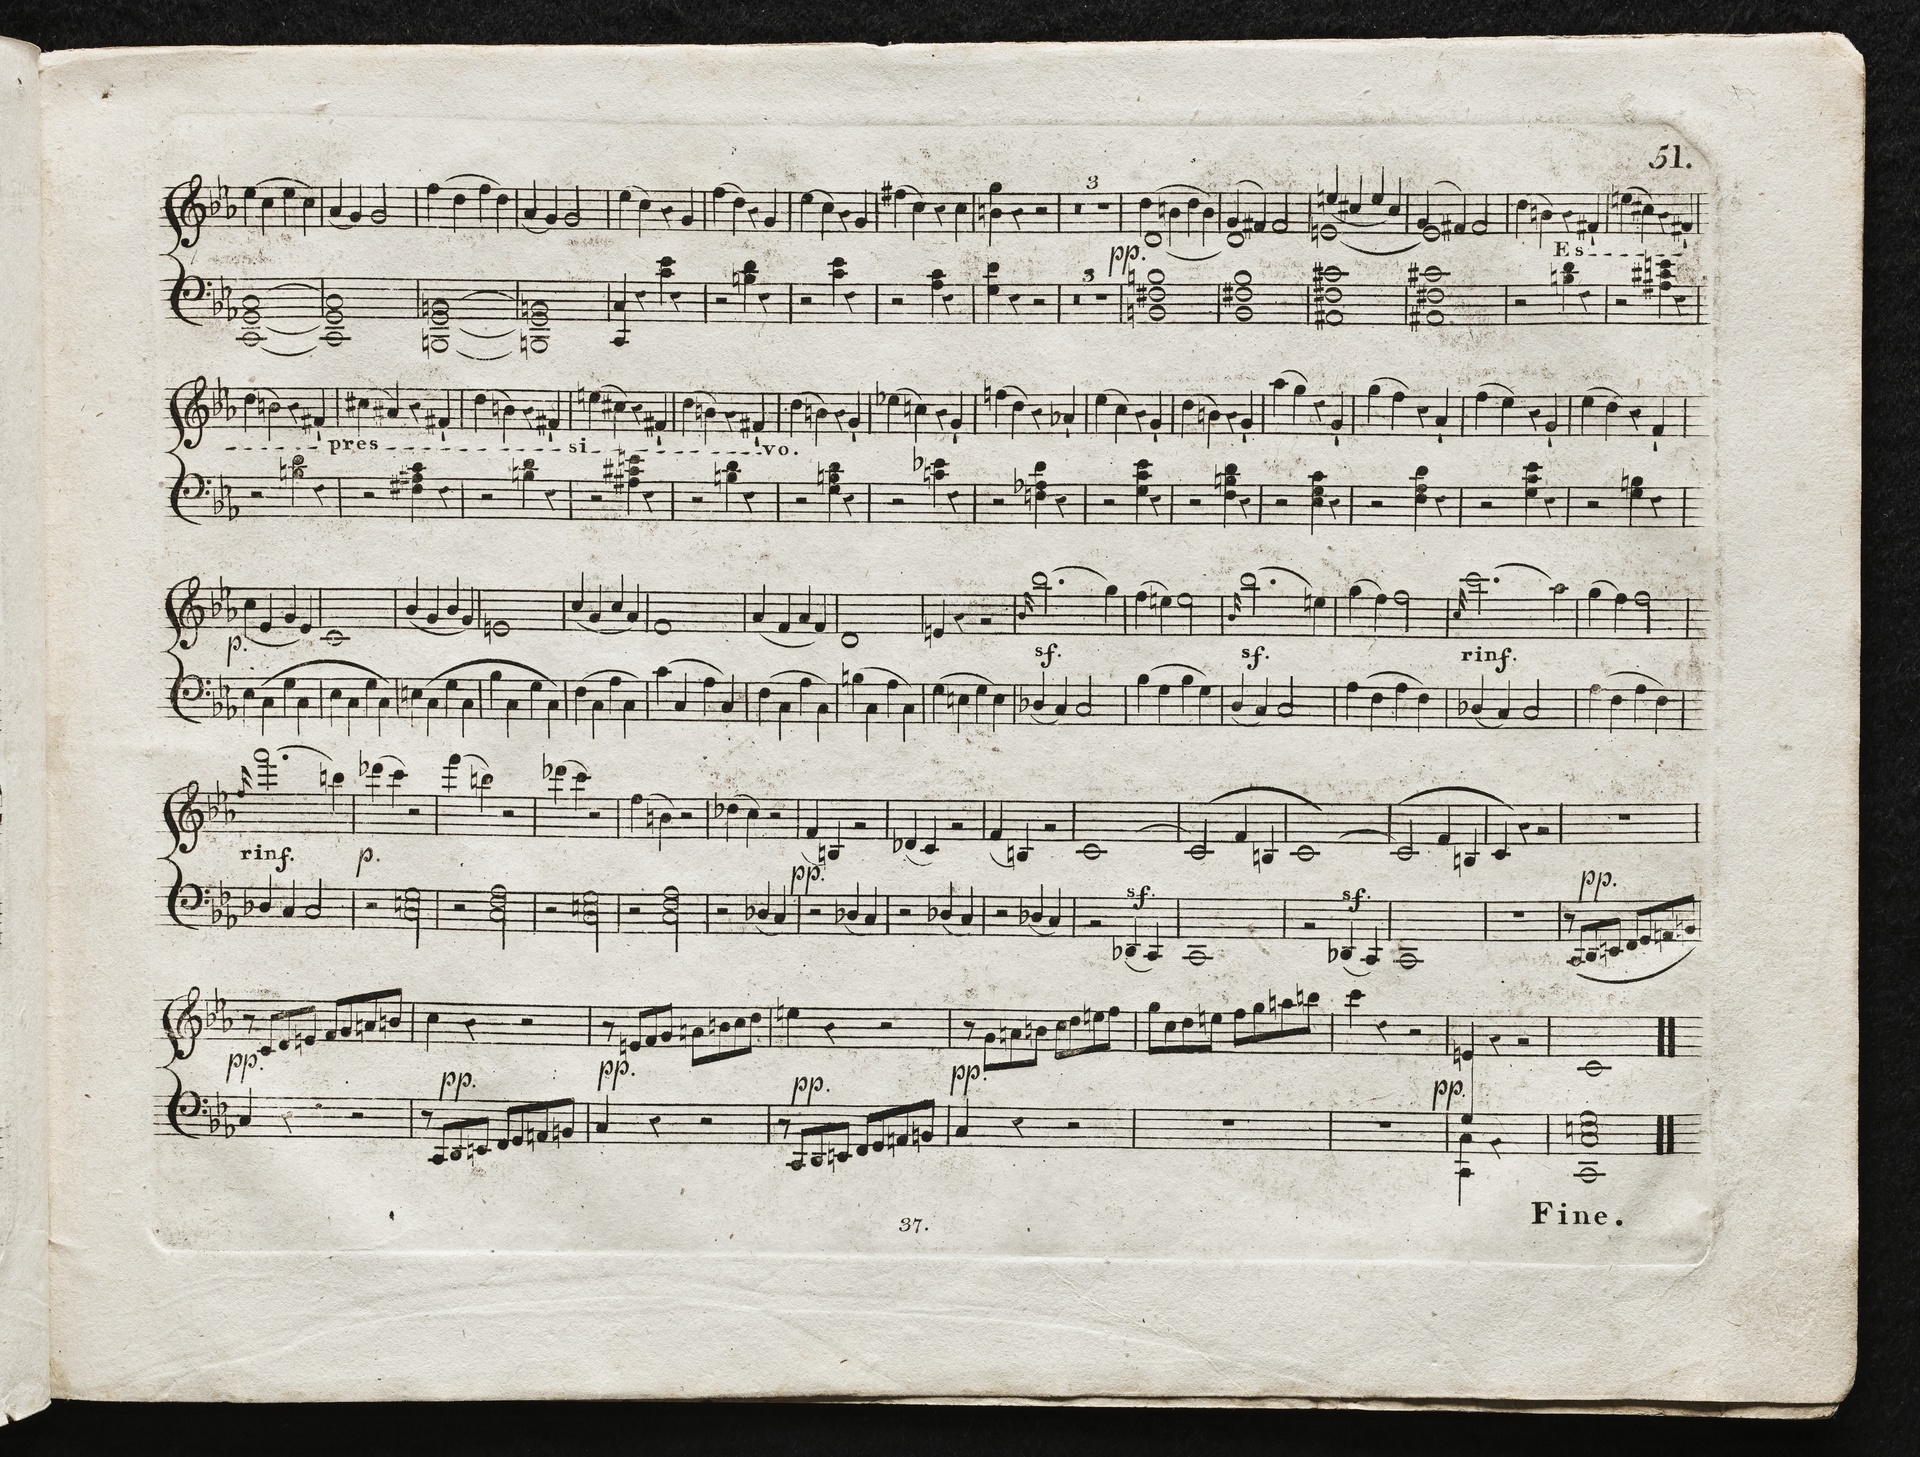 51.
3
pp.
Es
3
pres si vo.
p.
sf. sf. rinf.
rinf. p.
pp.
sf. sf. pp.
pp. pp. pp. pp. pp. pp.
Fine.
37.